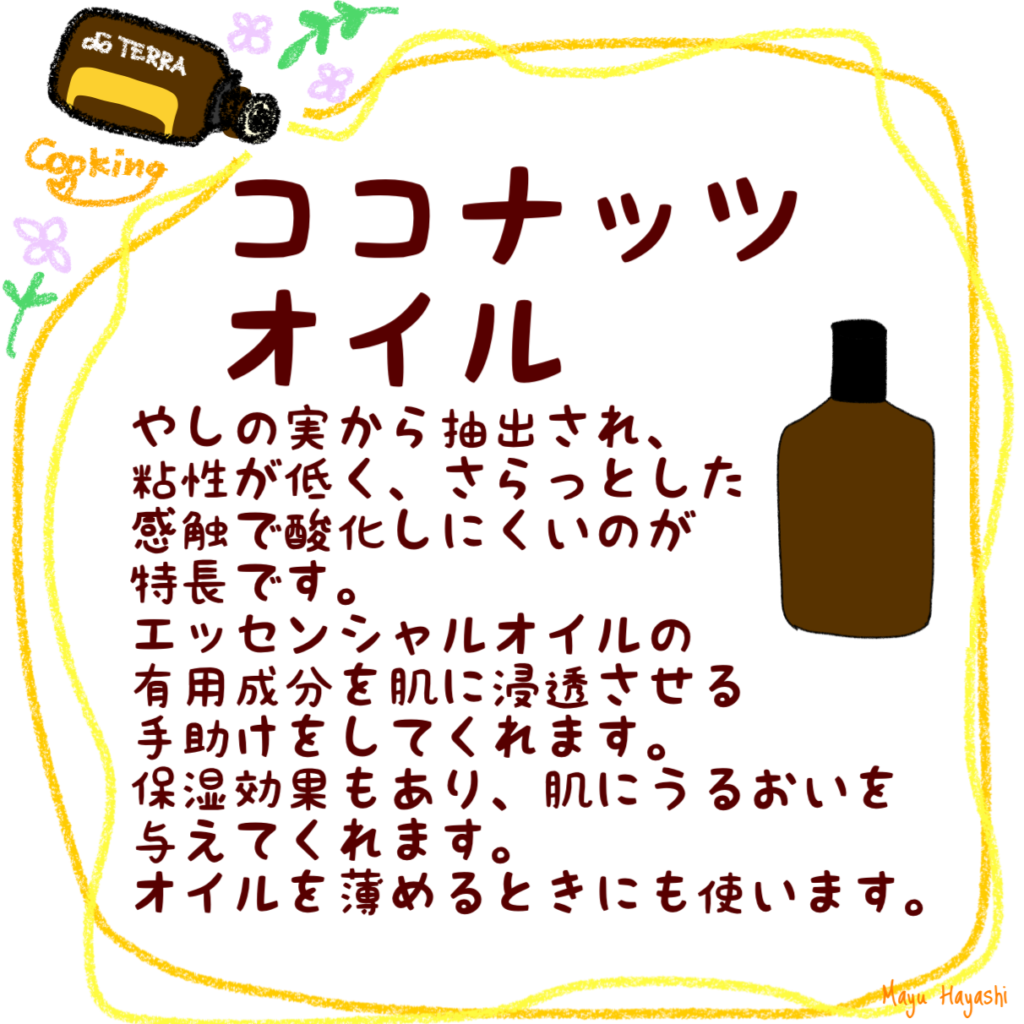 dō TERRA
Cooking
ココナッツ
オイル
やしの実から抽出され、
粘性が低く、さらっとした
感触で酸化しにくいのが
特長です。
エッセンシャルオイルの
有用成分を肌に浸透させる
手助けをしてくれます。
保湿効果もあり、肌にうるおいを
与えてくれます。
オイルを薄めるときにも使います。
Mayu Hayashi